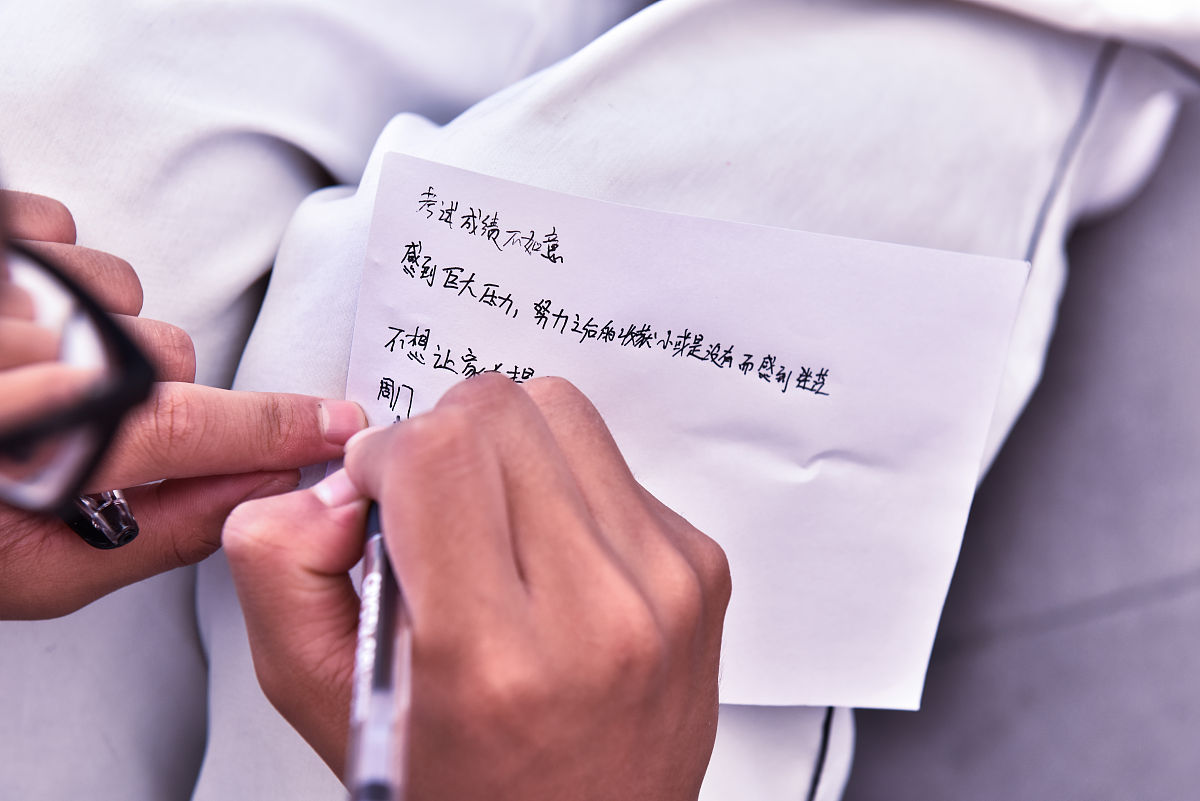 考试成绩不如意
感到巨大压力，努力之后的收获小或是没有而感到迷茫
不想让家
周